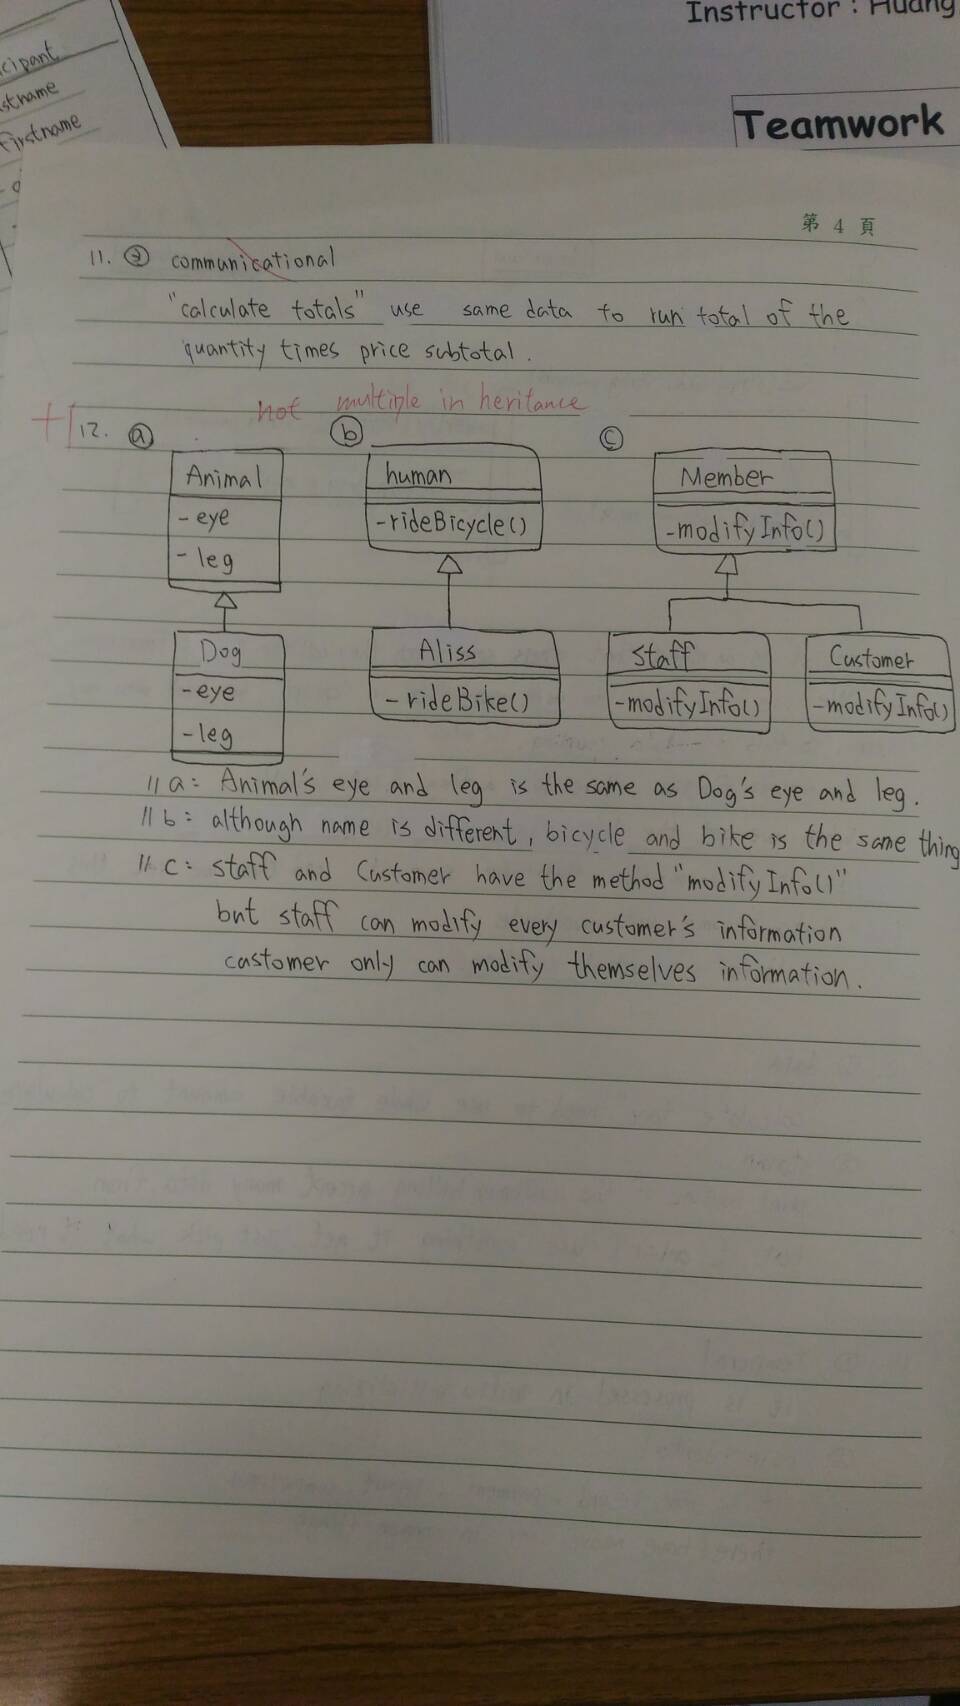 Instructor : Huang
Teamwork
cipant
stname
firstname
第 4 頁
11. ② communicational
"calculate totals" use same data to run total of the
quantity times price subtotal.
not multiple in heritance
+1
12. ⓐ ⓑ ⓒ
Animal
-eye
-leg
Dog
-eye
-leg
human
-rideBicycle()
Aliss
-rideBike()
Member
-modifyInfo()
Staff
-modifyInfo()
Customer
-modifyInfo()
// a: Animal's eye and leg is the same as Dog's eye and leg.
// b: although name is different, bicycle and bike is the same thing
// c: staff and Customer have the method "modifyInfo()"
but staff can modify every customer's information
castomer only can modify themselves information.